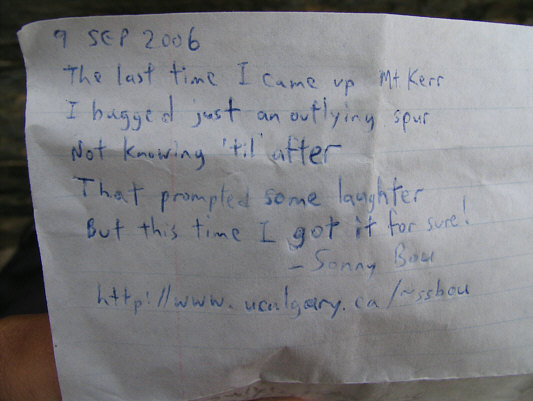 9 SEP 2006
The last time I came up Mt. Kerr
I bagged just an outlying spur
Not knowing 'til after
That prompted some laughter
But this time I got it for sure!
- Sonny Bou
http://www.ucalgary.ca/~ssbou